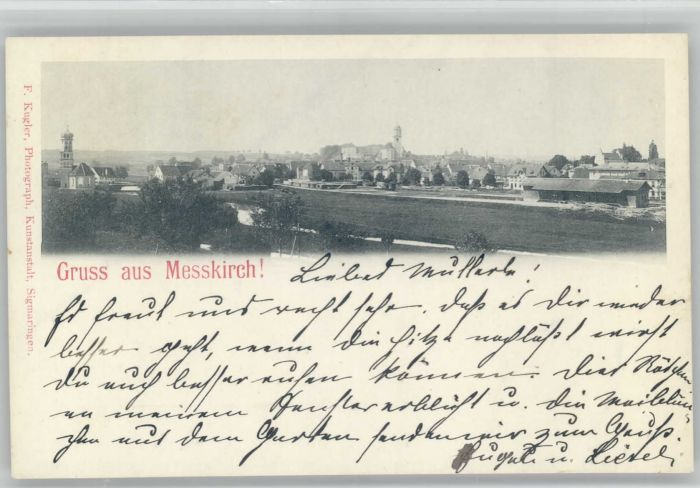 F. Kugler, Photograph, Kunstanstalt, Sigmaringen.
Gruss aus Messkirch!
Liebes Mutterle!
Es freut uns recht sehr, daß es Dir wieder
besser geht, wenn die Hitze nachläßt wirst
Du auch besser ruhen können. Dies Röschen
an meinem Fenster erblüht u. die Veilchen
aus dem Garten senden wir zum Gruß.
u. Liesel